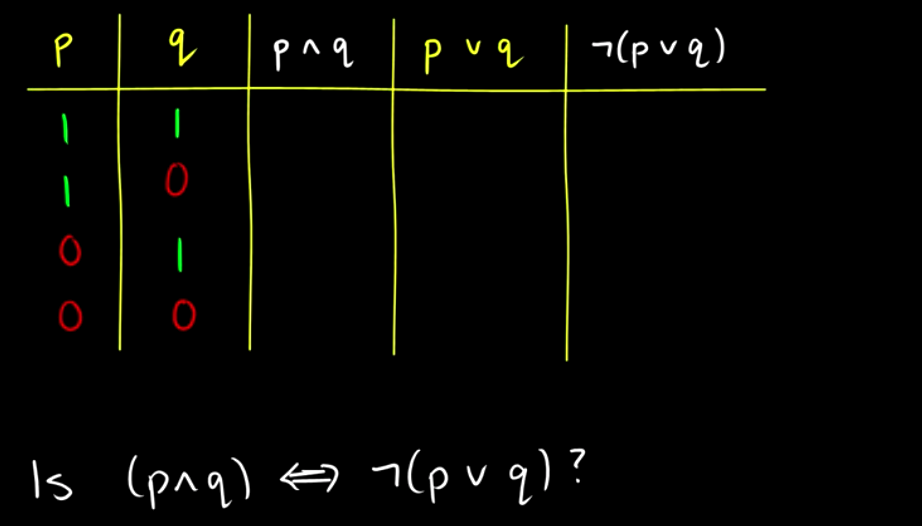 p q p ∧ q p ∨ q ¬(p ∨ q)
1 1
1 0
0 1
0 0
Is (p∧q) ⇔ ¬(p ∨ q)?